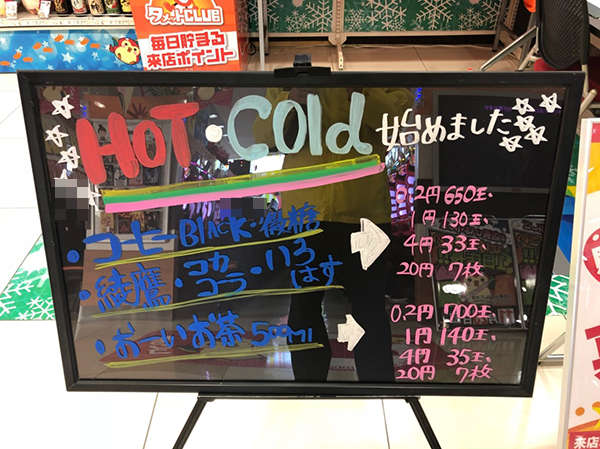 タメットCLUB
毎日貯まる
来店ポイント
HOT・Cold 始めました
・コーヒー Black・微糖
・綾鷹・コカコラ・いろはす
0.2円 650玉、
1円 130玉、
4円 33玉、
20円 7枚
・おーいお茶 500ml
0.2円 700玉、
1円 140玉、
4円 35玉、
20円 7枚
来店